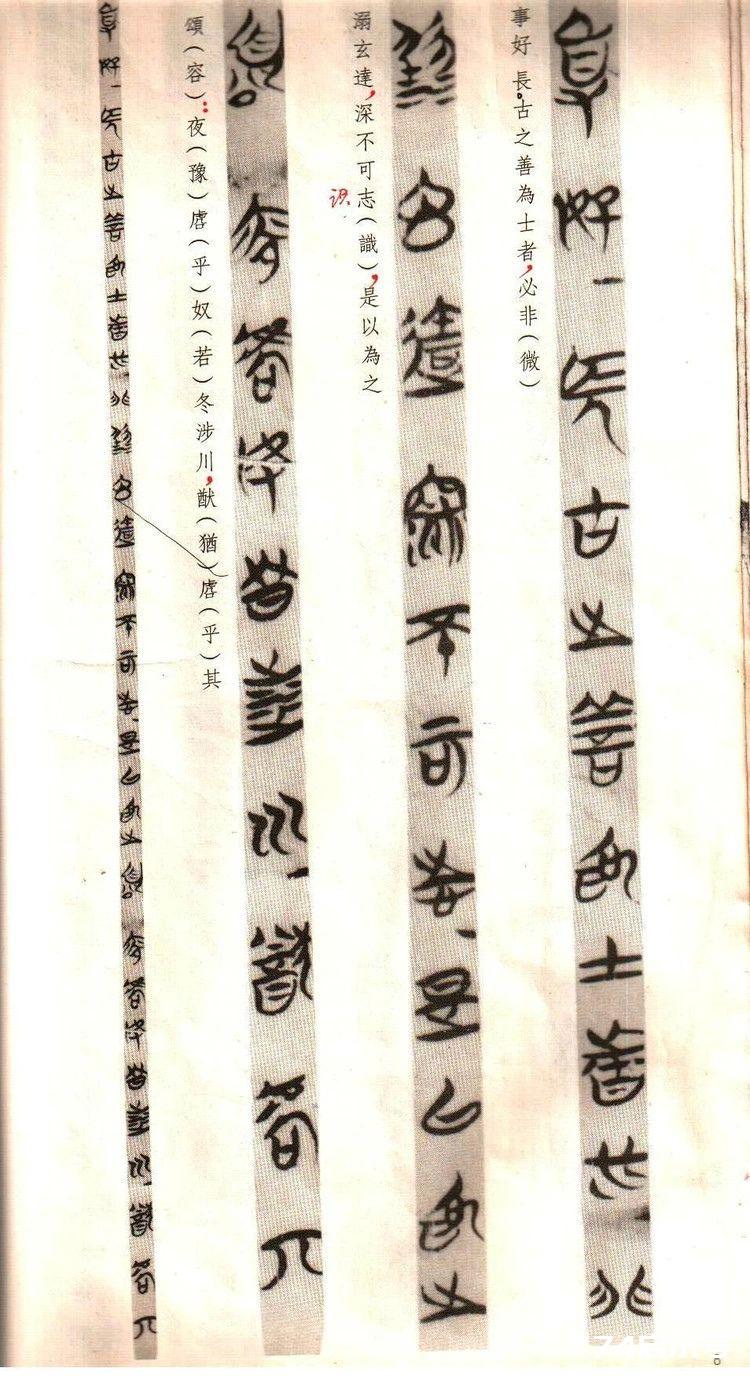 事好長。古之善為士者，必非（微）
溺玄達，深不可志（識），是以為之
識
頌（容）：夜（豫）虖（乎）奴（若）冬涉川，猷（猶）虖（乎）其